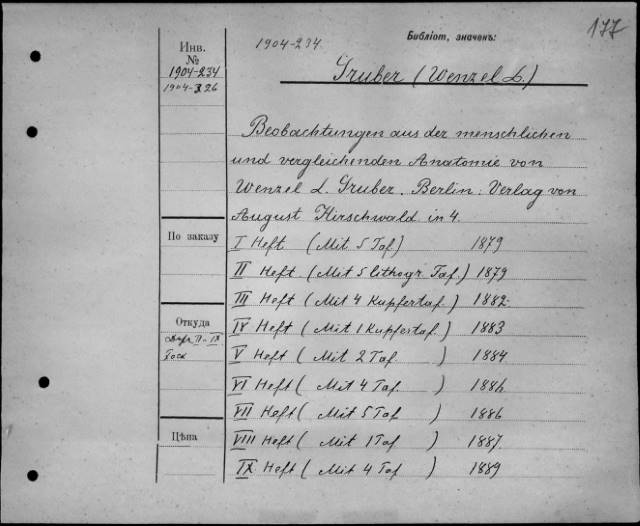 177
Библіот. значекъ:
1904-234
Инв.
№
1904-234
1904-326
Gruber (Wenzel L.)
Beobachtungen aus der menschlichen
und vergleichenden Anatomie von
Wenzel L. Gruber. Berlin: Verlag von
August Hirschwald in 4.
I Heft (Mit 5 Taf) 1879
II Heft (Mit 5 lithogr. Taf.) 1879
III Heft (Mit 4 Kupfertaf.) 1882
IV Heft (Mit 1 Kupfertaf.) 1883
V Heft (Mit 2 Taf. ) 1884
VI Heft (Mit 4 Taf. ) 1886
VII Heft (Mit 5 Taf ) 1886
VIII Heft (Mit 1 Taf ) 1887
IX Heft (Mit 4 Taf ) 1889
По заказу
Откуда
II-IX
Цѣна